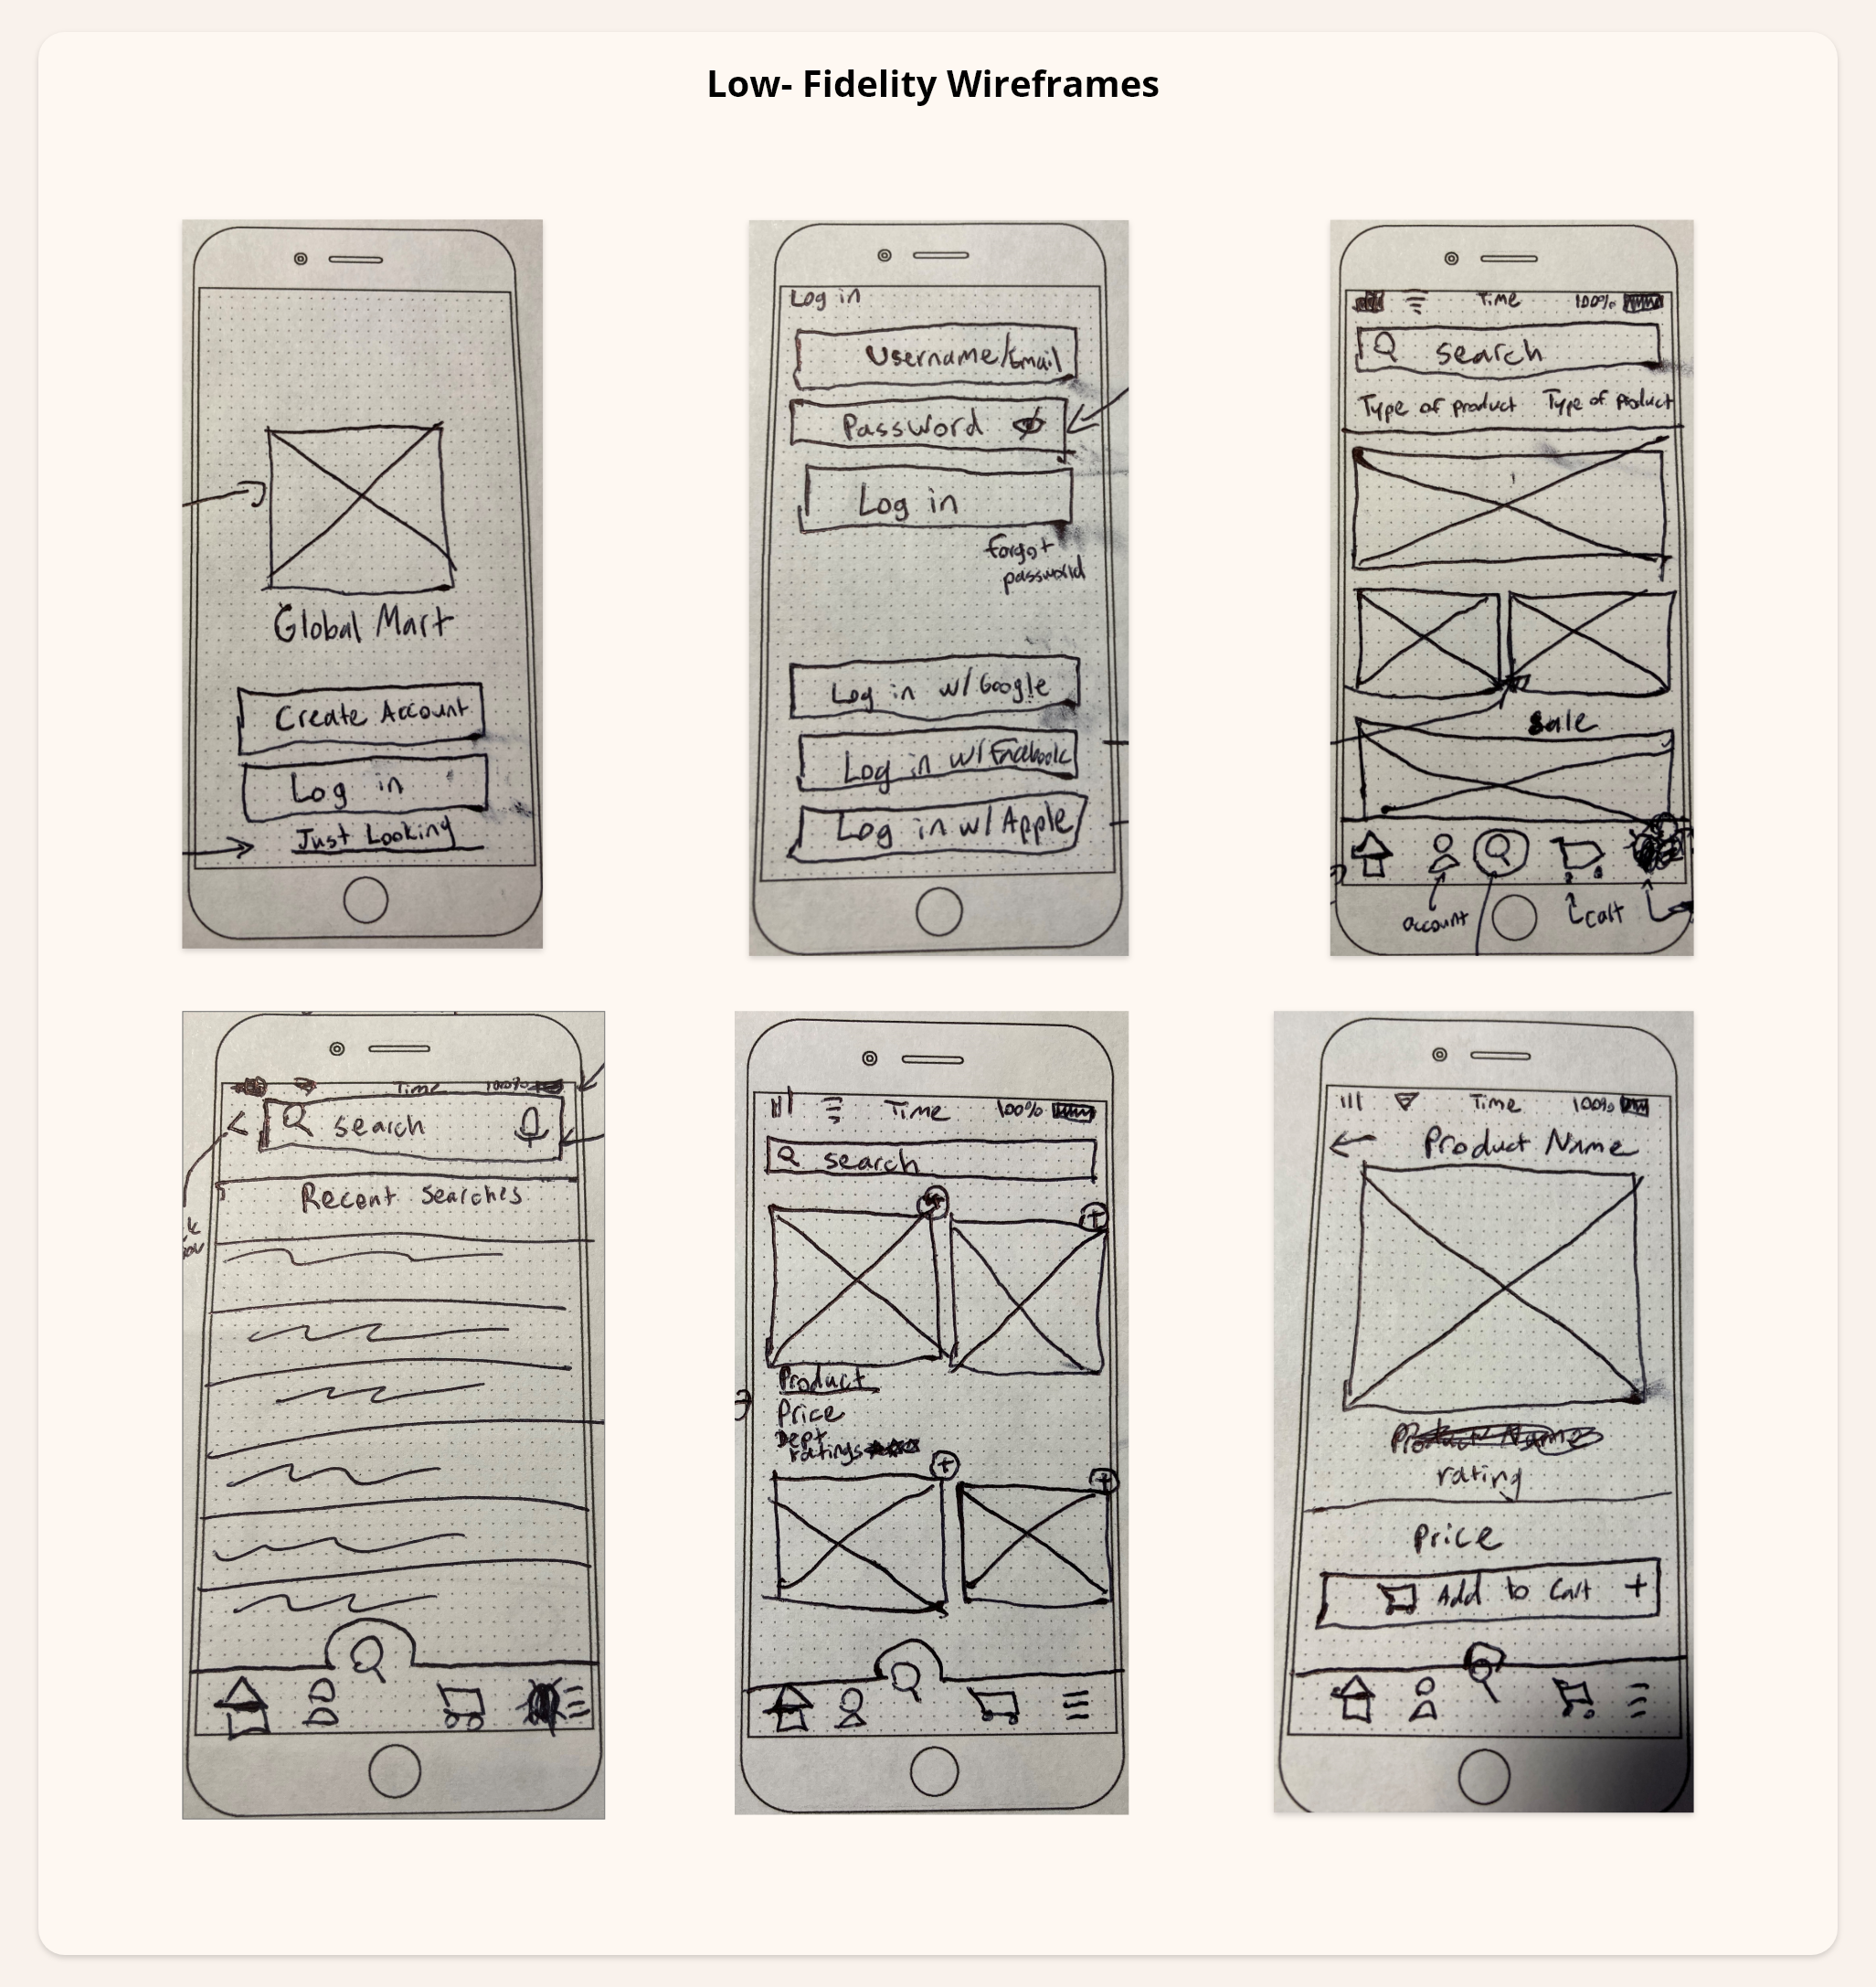 Low- Fidelity Wireframes
Global Mart
Create Account
Log in
Just Looking
Log in
Username/Email
Password
Log in
forgot
password
Log in w/Google
Log in w/Facebook
Log in w/Apple
Time 100%
search
Type of product Type of product
Sale
account
cart
Time 100%
search
Recent Searches
Time 100%
search
Product
Price
Dept
ratings
Time 100%
Product Name
Product Name
rating
Price
Add to Cart +